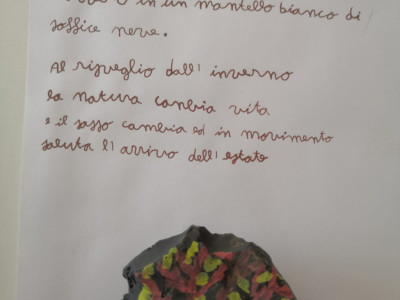 in un mantello bianco di
soffice neve.
Al risveglio dall' inverno
la natura cambia vita
e il sasso cambia ed in movimento
saluta l' arrivo dell' estate